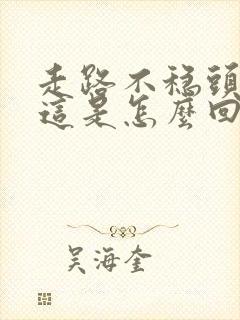 走路不稳頭
這是怎麼回
吴海奎